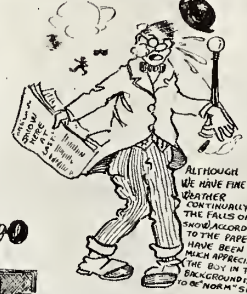 SNOW
HERE
AT
LAST
ALTHOUGH
WE HAVE FINE
WEATHER
CONTINUALLY
THE FALLS OF
SNOW (ACCORD
TO THE PAPE
HAVE BEEN
MUCH APPRECI
(THE BOY IN T
BACKGROUND
TO BE "NORM" S